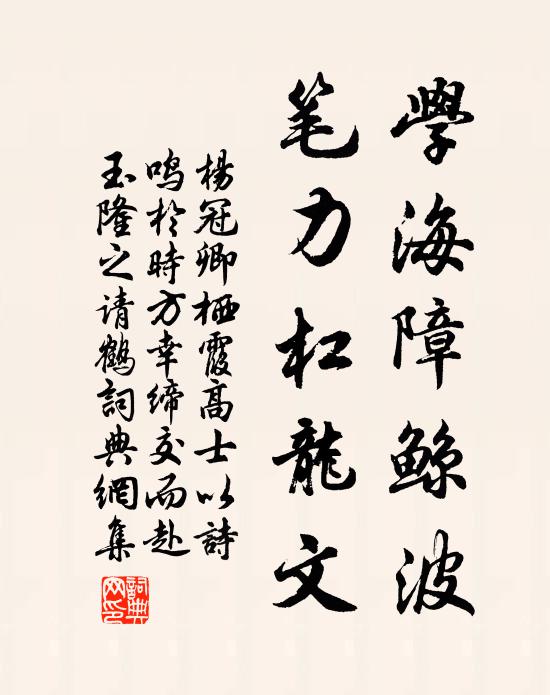 學海障鯨波
笔力杠龍文
楊冠卿栖霞高士以詩
鸣於時方幸缔交而赴
玉隆之请鶴詞典網集
詞典網印